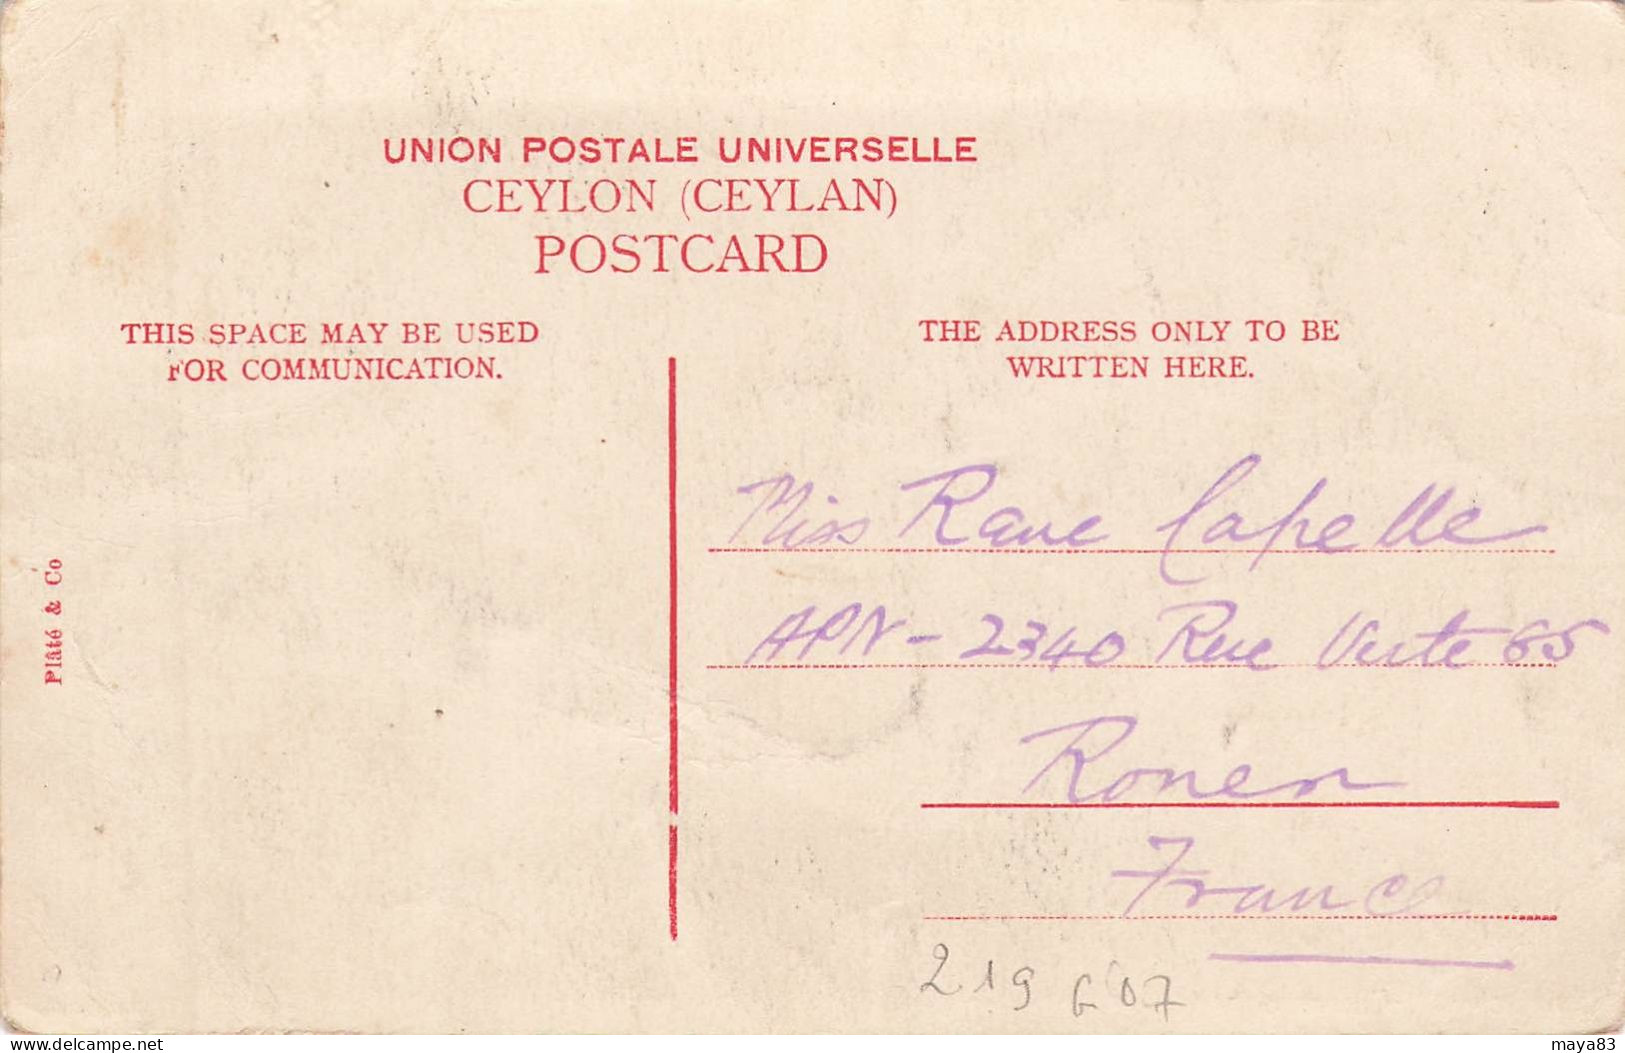 UNION POSTALE UNIVERSELLE
CEYLON (CEYLAN)
POSTCARD
THIS SPACE MAY BE USED
FOR COMMUNICATION.
THE ADDRESS ONLY TO BE
WRITTEN HERE.
Plâté & Co
Miss Rane Capelle
APN - 2340 Rue Verte 65
Rouen
France
219 607
delcampe.net
maya83